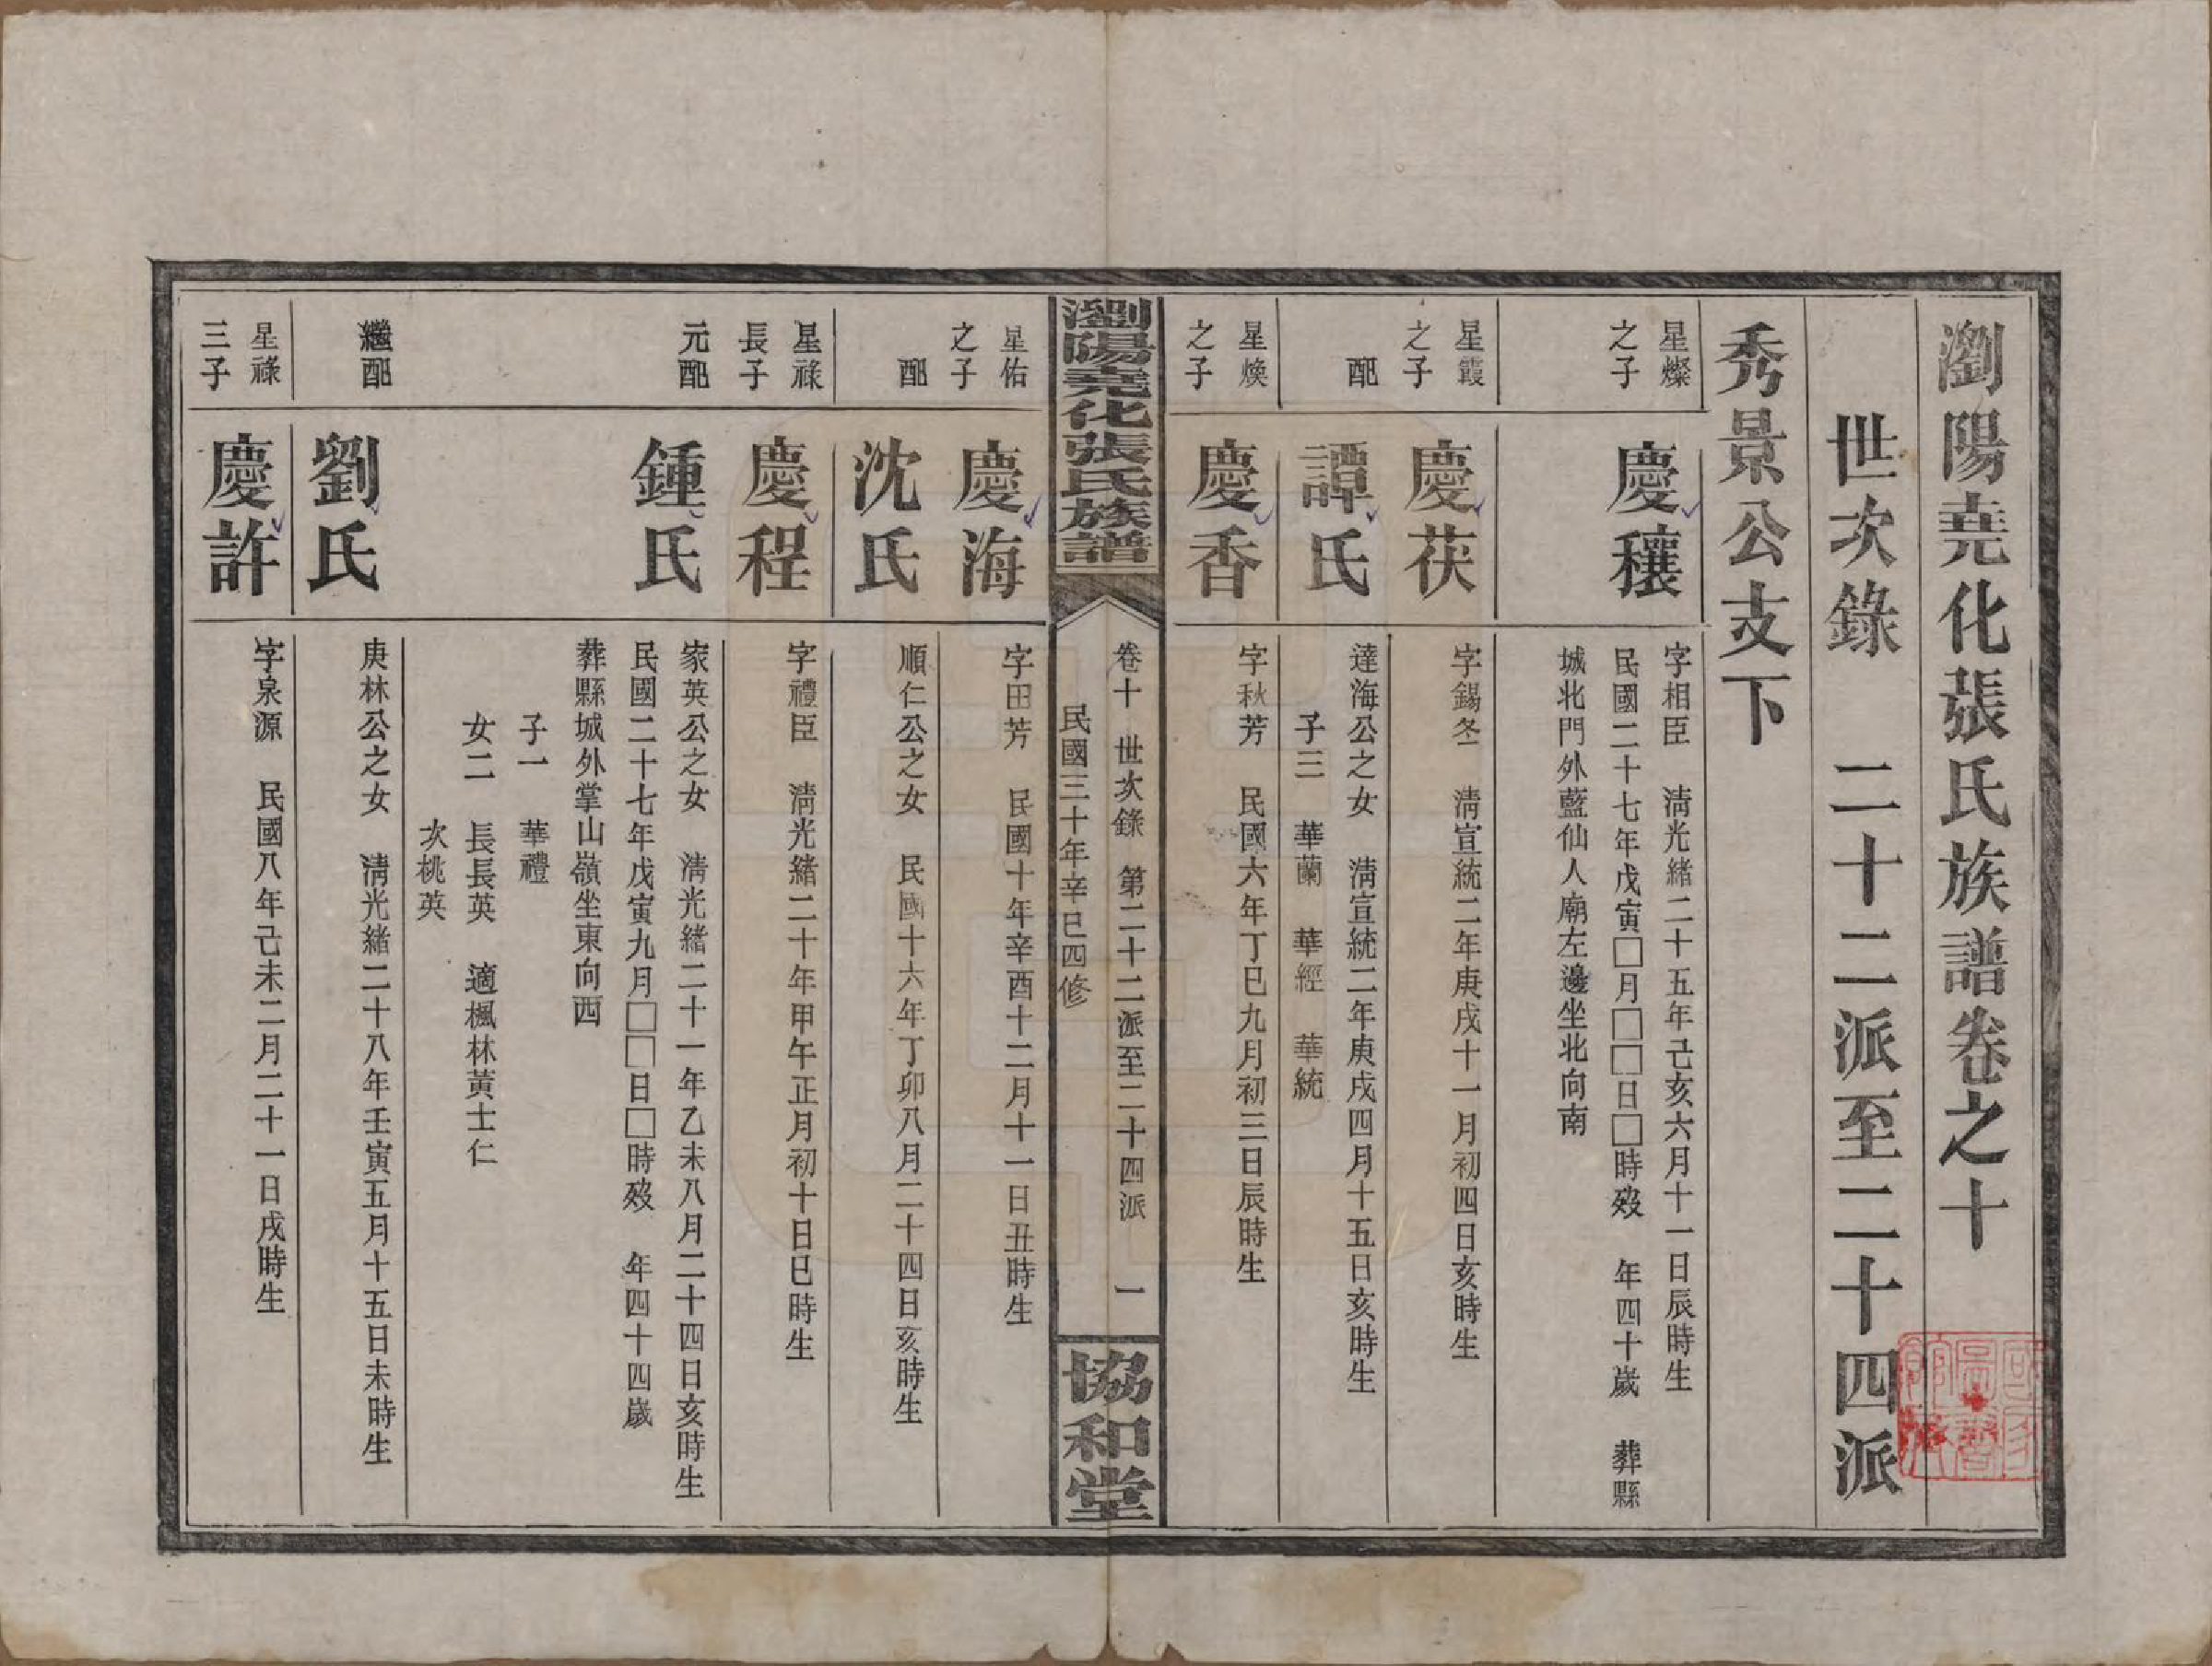 瀏陽堯化張氏族譜卷之十
世次錄　二十二派至二十四派
秀景公支下
星燦
之子
慶穰
字相臣　清光緒二十五年己亥六月十一日辰時生
民國二十七年戊寅□月□□日□時歿　年四十歲　葬縣
城北門外藍仙人廟左邊坐北向南
星霞
之子
慶茯
字錫冬　清宣統二年庚戌十一月初四日亥時生
配
譚氏
達海公之女　清宣統二年庚戌四月十五日亥時生
子三　華蘭　華經　華統
星煥
之子
慶香
字秋芳　民國六年丁巳九月初三日辰時生
瀏陽堯化張氏族譜
卷十　世次錄　第二十二派至二十四派　一
民國三十年辛巳四修
協和堂
星佑
之子
慶海
字田芳　民國十年辛酉十二月十一日丑時生
配
沈氏
順仁公之女　民國十六年丁卯八月二十四日亥時生
星祿
長子
慶程
字禮臣　清光緒二十年甲午正月初十日巳時生
元配
鍾氏
家英公之女　清光緒二十一年乙未八月二十四日亥時生
民國二十七年戊寅九月□□日□時歿　年四十四歲
葬縣城外掌山嶺坐東向西
子一　華禮
女二　長長英　適楓林黃士仁
次桃英
繼配
劉氏
庚林公之女　清光緒二十八年壬寅五月十五日未時生
星祿
三子
慶許
字泉源　民國八年己未二月二十一日戌時生